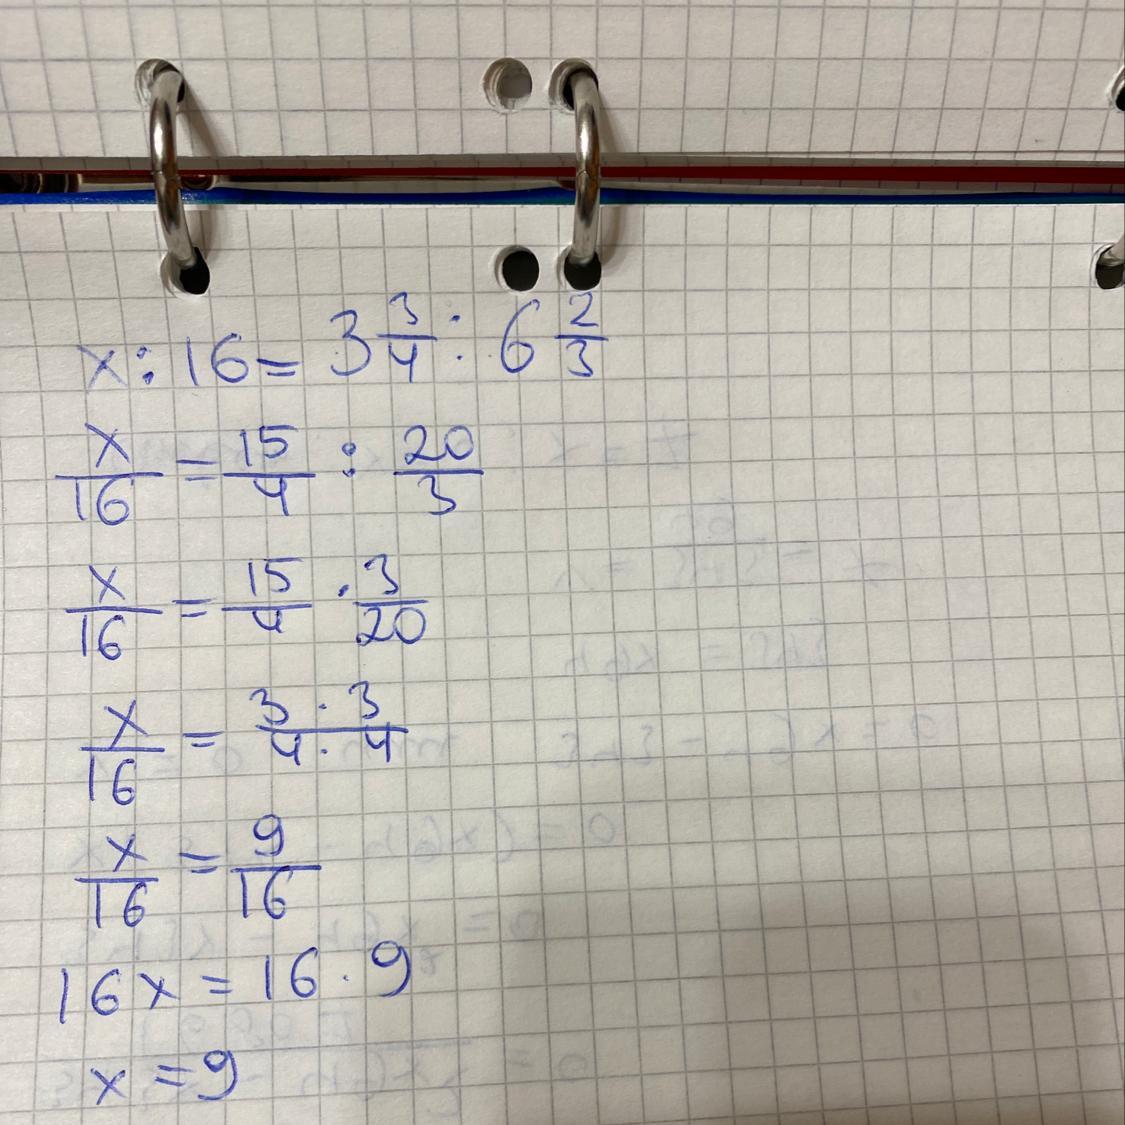 x : 16 = 3 3/4 : 6 2/3
x/16 = 15/4 : 20/3
x/16 = 15/4 · 3/20
x/16 = 3 · 3/4 · 4
x/16 = 9/16
16x = 16 · 9
x = 9